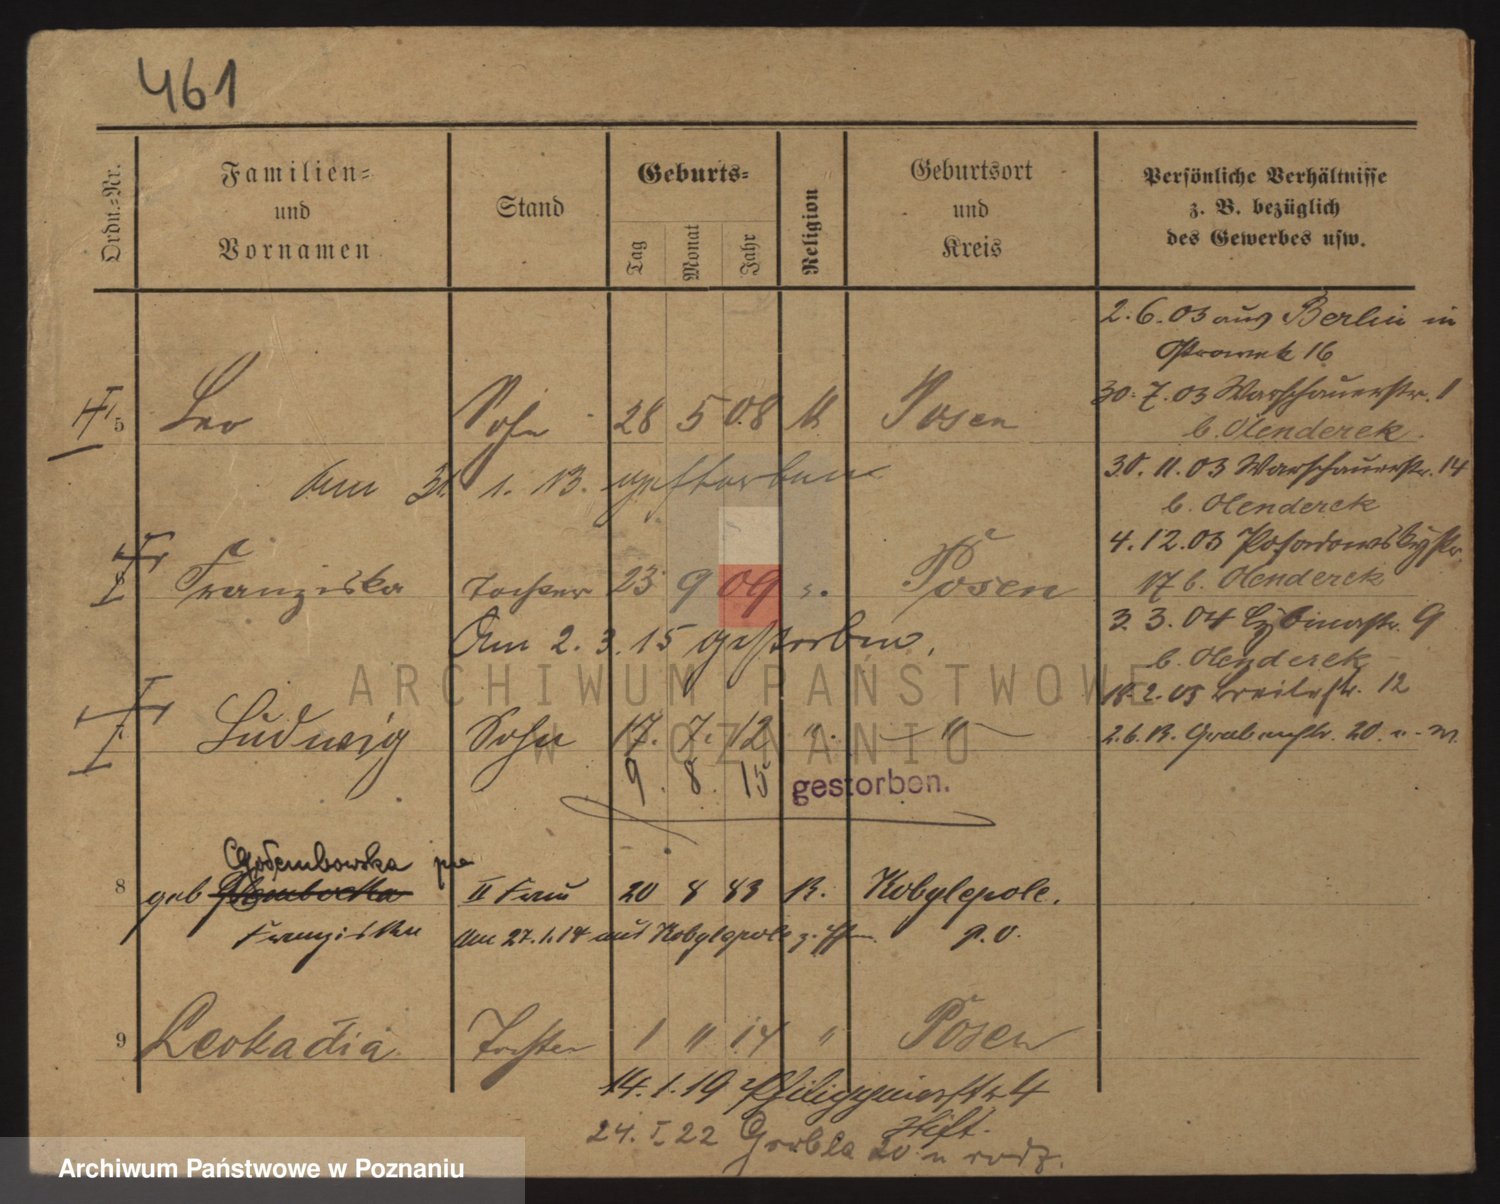 461
Ordn.-Nr.
Familien-
und
Vornamen
Stand
Geburts-
Tag
Monat
Jahr
Religion
Geburtsort
und
Kreis
Persönliche Verhältnisse
z. B. bezüglich
des Gewerbes usw.
2.6.03 aus Berlin in
Ostrowek 16
30.7.03 Warschauerstr. 1
b. Olenderek.
30.11.03 Warschauerstr. 14
b. Olenderek
4.12.03 Posadowskystr.
17 b. Olenderek
3.3.04 Cybinastr. 9
b. Olenderek
18.2.05 Breitestr. 12
2.6.13. Grabenstr. 20.
5 Leo Sohn 28 5 08 K Posen
Am 31. 1. 13. gestorben
6 Franziska Tochter 23 9 09 ". Posen
Am 2. 3. 15 gestorben.
7 Ludwig Sohn 17. 7. 12 ". — " —
9. 8. 15 gestorben.
Gołembowska
8 geb II Frau 20 8 83 K. Kobylepole.
Franziska Am 27.1.14 aus Kobylepole P. O.
9 Leokadia Tochter 1 " 14 " Posen
14.1.19
24. I. 22 Grobla 20
ARCHIWUM PAŃSTWOWE
W POZNANIU
Archiwum Państwowe w Poznaniu